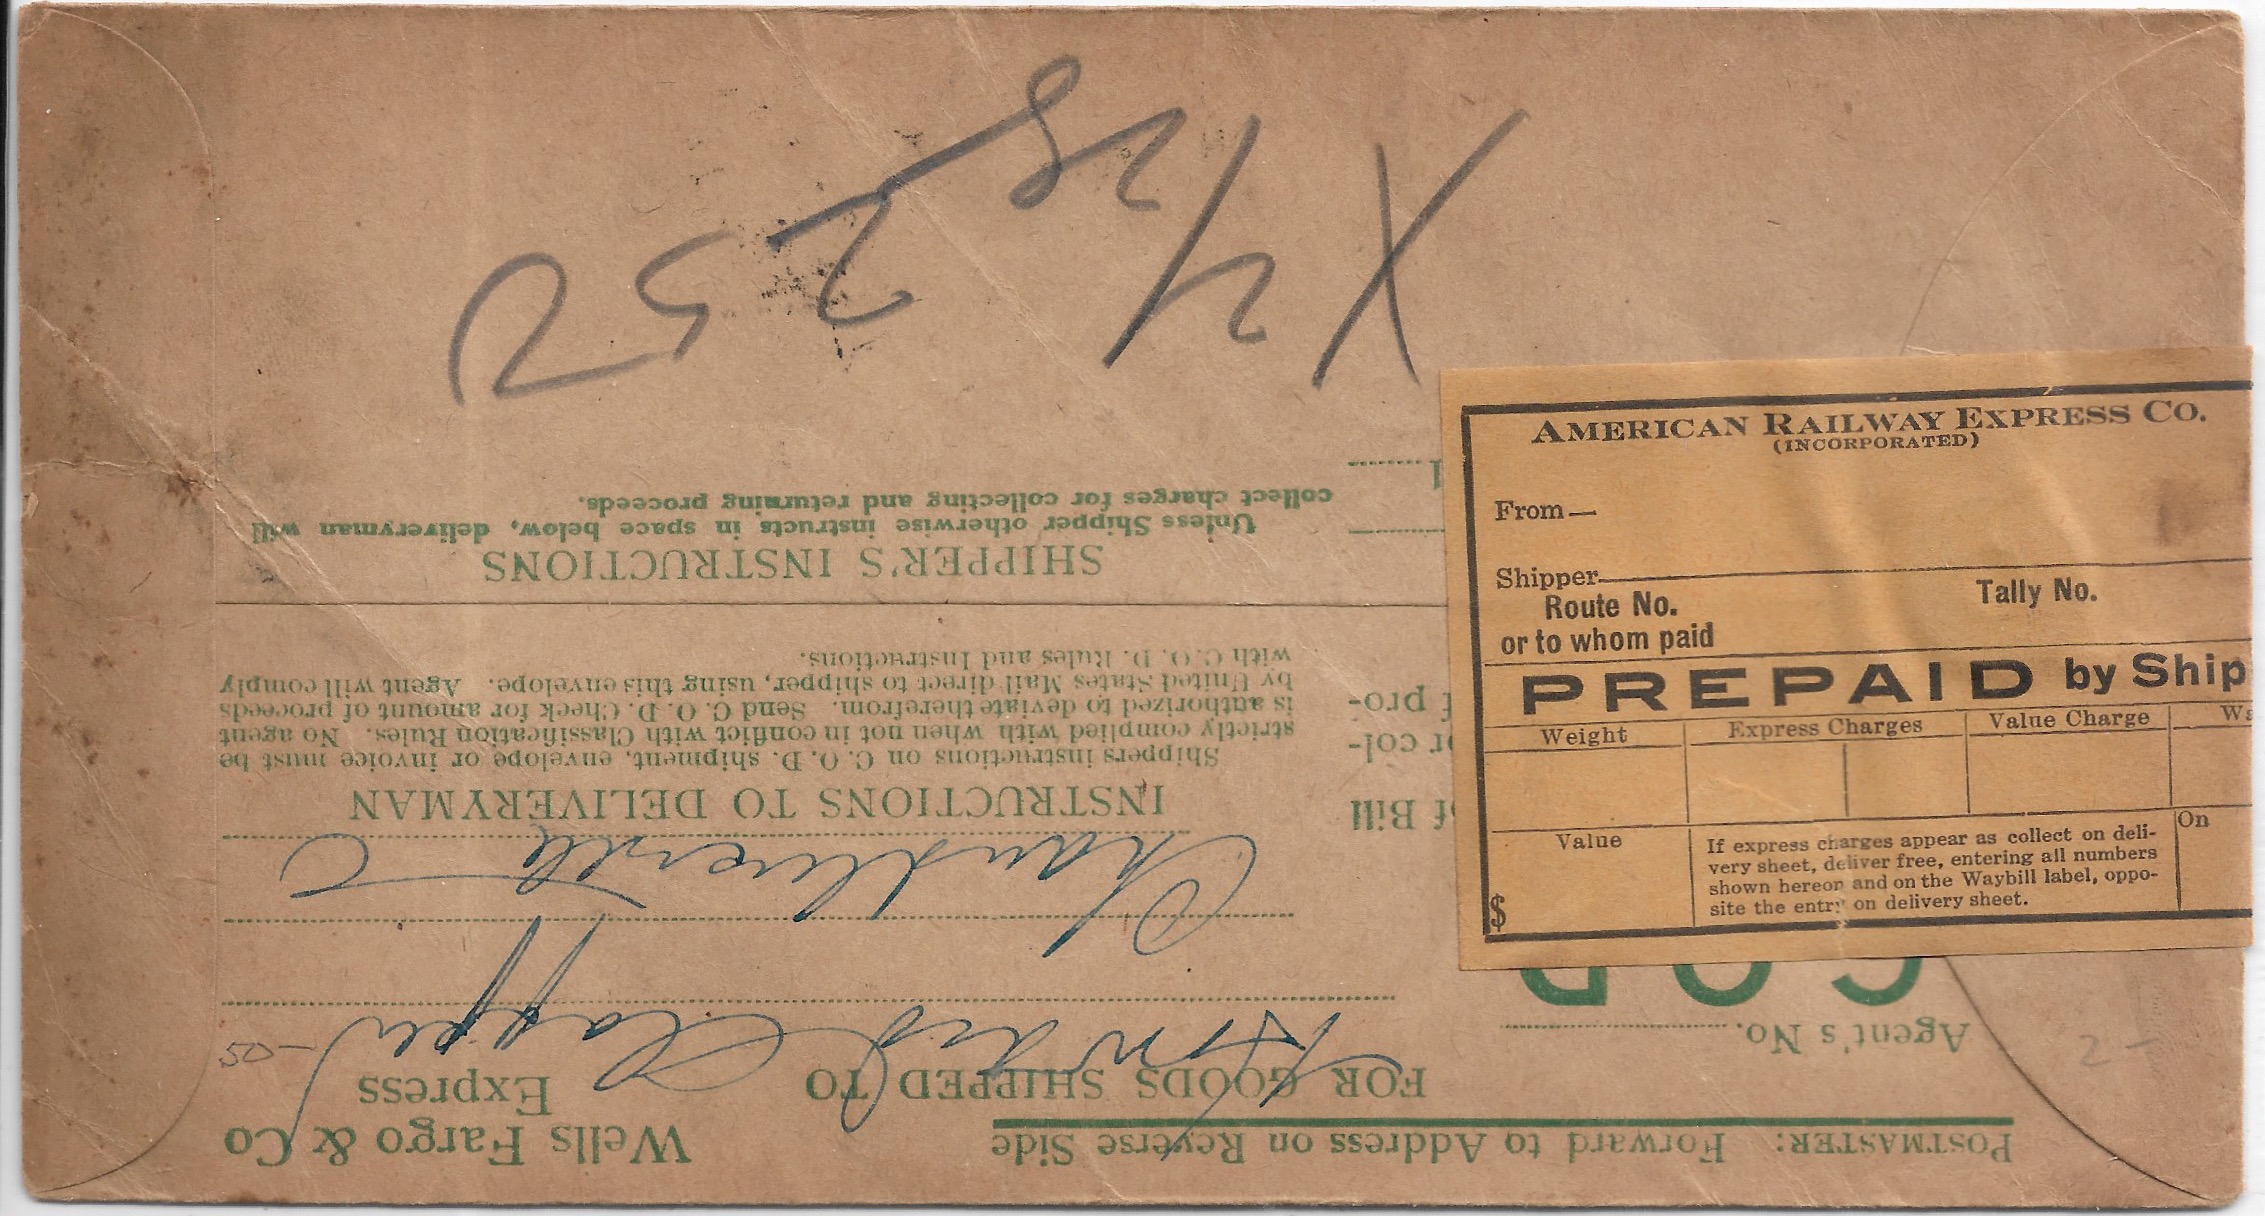 AMERICAN RAILWAY EXPRESS CO.
(INCORPORATED)
From—
Shipper
Route No. Tally No.
or to whom paid
PREPAID by Ship
Weight Express Charges Value Charge Wa
Value
$
If express charges appear as collect on deli-
very sheet, deliver free, entering all numbers
shown hereon and on the Waybill label, oppo-
site the entry on delivery sheet.
On
POSTMASTER: Forward to Address on Reverse Side
Wells Fargo & Co
Express
FOR GOODS SHIPPED TO
50-
2-
Agent's No.
COD
Howard Clapper
Chandlerville
f Bill
r col-
f pro-
INSTRUCTIONS TO DELIVERYMAN
Shippers instructions on C. O. D. shipment, envelope or invoice must be
strictly complied with when not in conflict with Classification Rules. No agent
is authorized to deviate therefrom. Send C. O. D. Check for amount of proceeds
by United States Mail direct to shipper, using this envelope. Agent will comply
with C. O. D. Rules and Instructions.
SHIPPER'S INSTRUCTIONS
Unless Shipper otherwise instructs in space below, deliveryman will
collect charges for collecting and returning proceeds.